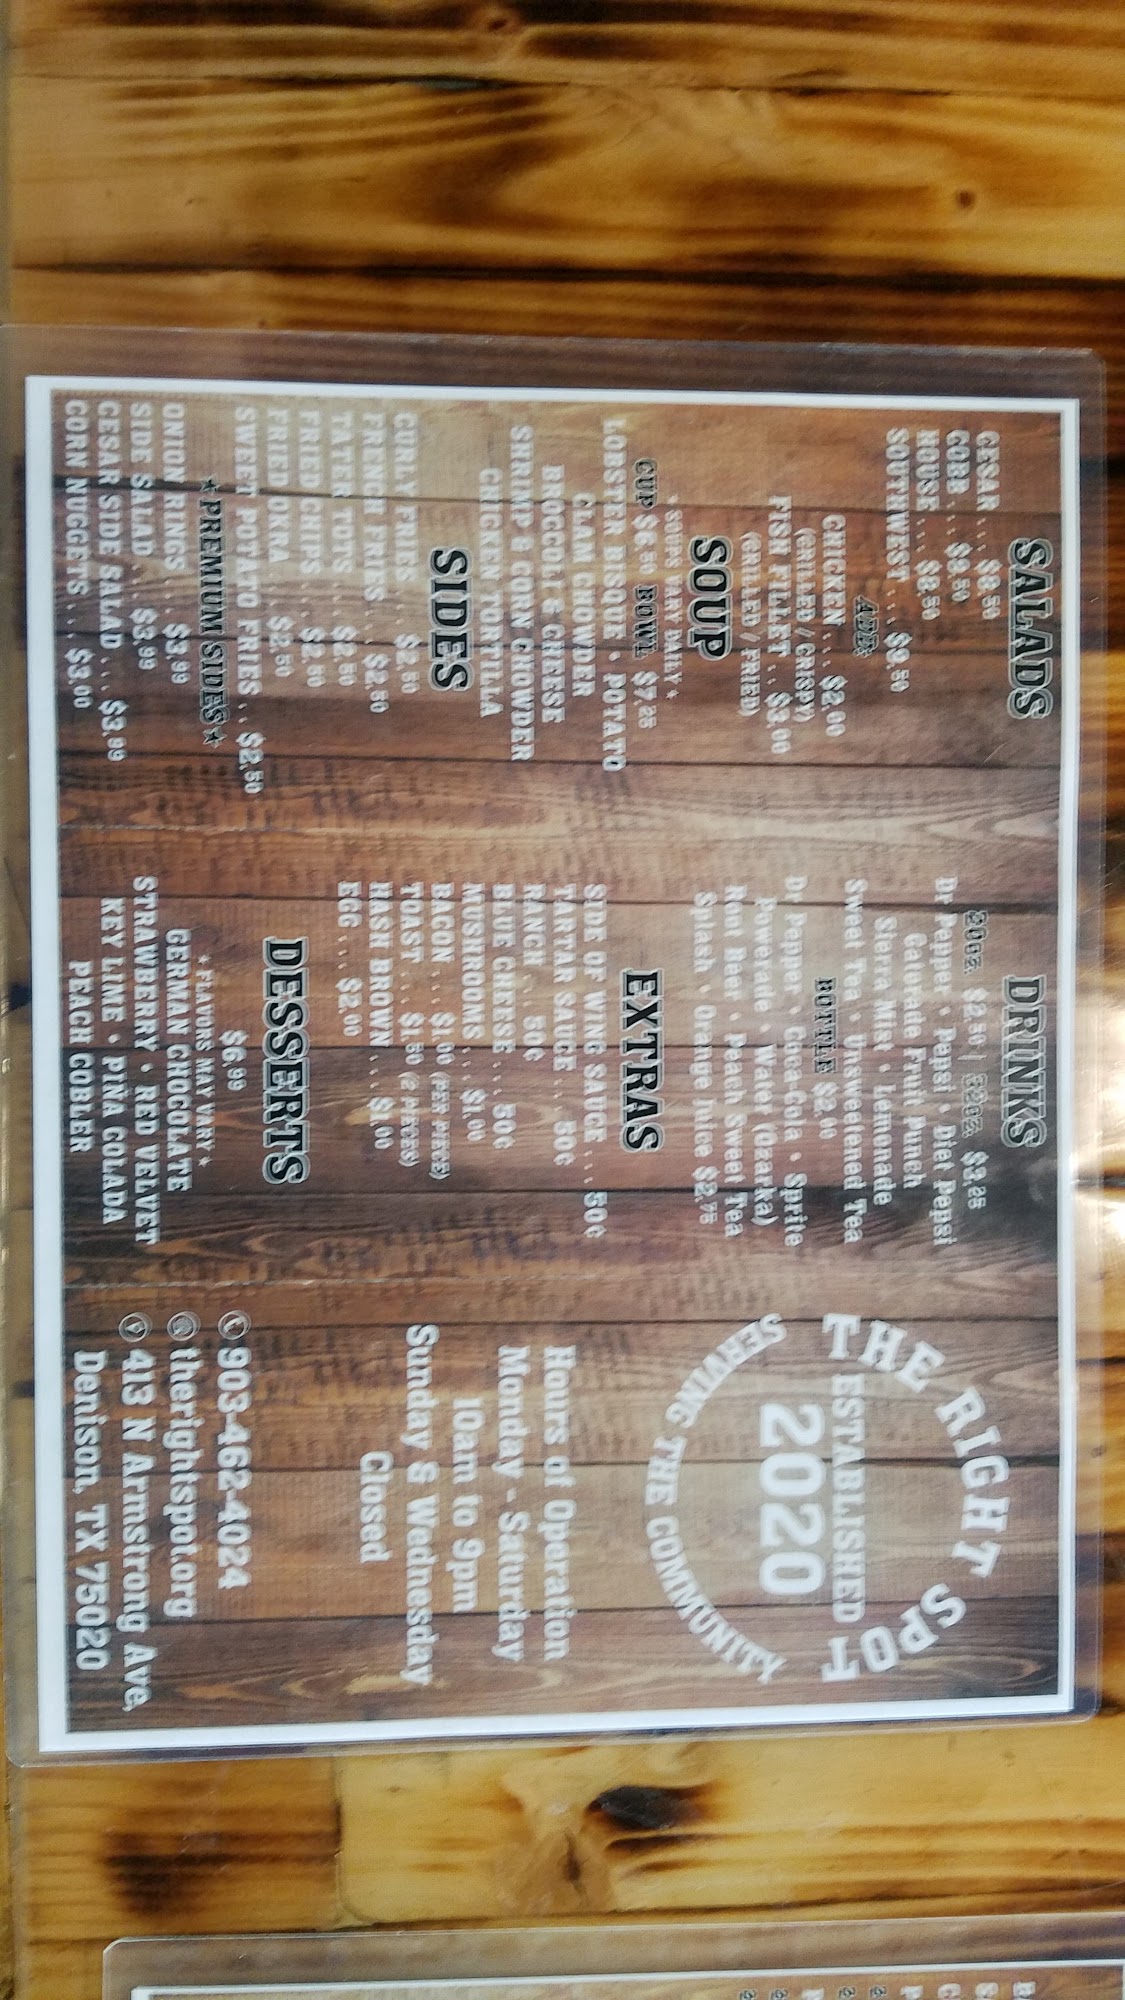 SALADS
CESAR ... $8.50
COBB .... $9.50
HOUSE ... $8.50
SOUTHWEST ... $9.50
ADD
CHICKEN ... $2.00
(GRILLED/CRISPY)
FISH FILLET .. $3.00
(GRILLED/FRIED)
SOUP
*SOUPS VARY DAILY*
CUP $6.50 BOWL $7.25
LOBSTER BISQUE • POTATO
CLAM CHOWDER
BROCOLLI & CHEESE
SHRIMP & CORN CHOWDER
CHICKEN TORTILLA
SIDES
CURLY FRIES .... $2.50
FRENCH FRIES ... $2.50
TATER TOTS .... $2.50
FRIED CHIPS ... $2.50
FRIED OKRA .... $2.50
SWEET POTATO FRIES .. $2.50
★PREMIUM SIDES★
ONION RINGS .... $3.99
SIDE SALAD .... $3.99
CESAR SIDE SALAD ... $3.99
CORN NUGGETS ... $3.00
DRINKS
20oz $2.50 | 32oz $3.25
Dr Pepper • Pepsi • Diet Pepsi
Fruit Punch
Siera Mist • Lemonade
Sweet Tea • Unsweetened Tea
BOTTLE $2.00
Dr Pepper • Coca-Cola • Sprite
Powerade • Water (Ozarka)
Root Beer • Peach Sweet Tea
Splash • Orange Juice $2.75
EXTRAS
SIDE OF WING SAUCE ... 50¢
TARTAR SAUCE .... 50¢
RANCH .. 50¢
BLUE CHEESE ... 50¢
MUSHROOMS .... $1.00
BACON .... $1.00 (PER PIECE)
TOAST ... $1.50 (2 PIECES)
HASH BROWN .... $1.00
EGG ... $2.00
DESSERTS
$6.99
*FLAVORS MAY VARY*
GERMAN CHOCOLATE
STRAWBERRY • RED VELVET
KEY LIME • PINA COLADA
PEACH COBLER
THE RIGHT SPOT
ESTABLISHED
2020
SERVING THE COMMUNITY
Hours of Operation
Monday - Saturday
10am to 9pm
Sunday & Wednesday
Closed
903-462-4024
therightspot.org
413 N Armstrong Ave,
Denison, TX 75020